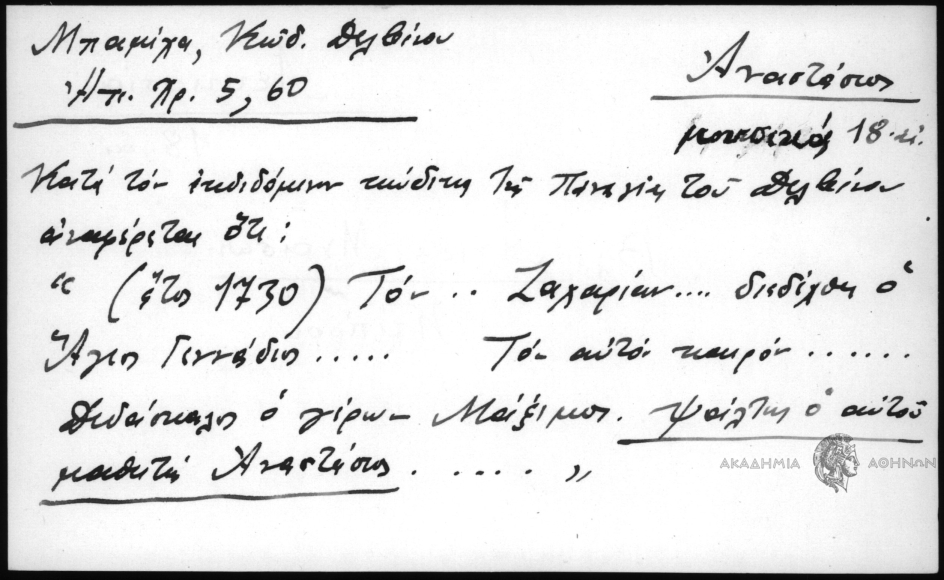 Μπαμίχα, Κώδ. Δελβίνου
Ἠπ. Χρ. 5, 60
Ἀναστάσιος
μουσικός 18 αἰ.
Κατά τόν ἐκδιδόμενον κώδικα τῆς Παναγίας τοῦ Δελβίνου
ἀναφέρεται ὅτι:
“ (ἔτος 1730) Τόν .. Ζαχαρίαν.... διεδέχθη ὁ
Ἅγιος Γεννάδιος ..... Τόν αὐτόν καιρόν ......
Διδάσκαλος ὁ γέρων Μάξιμος. Ψάλτης ὁ αὐτοῦ
μαθητής Ἀναστάσιος ..... „
ΑΚΑΔΗΜΙΑ ΑΘΗΝΩΝ